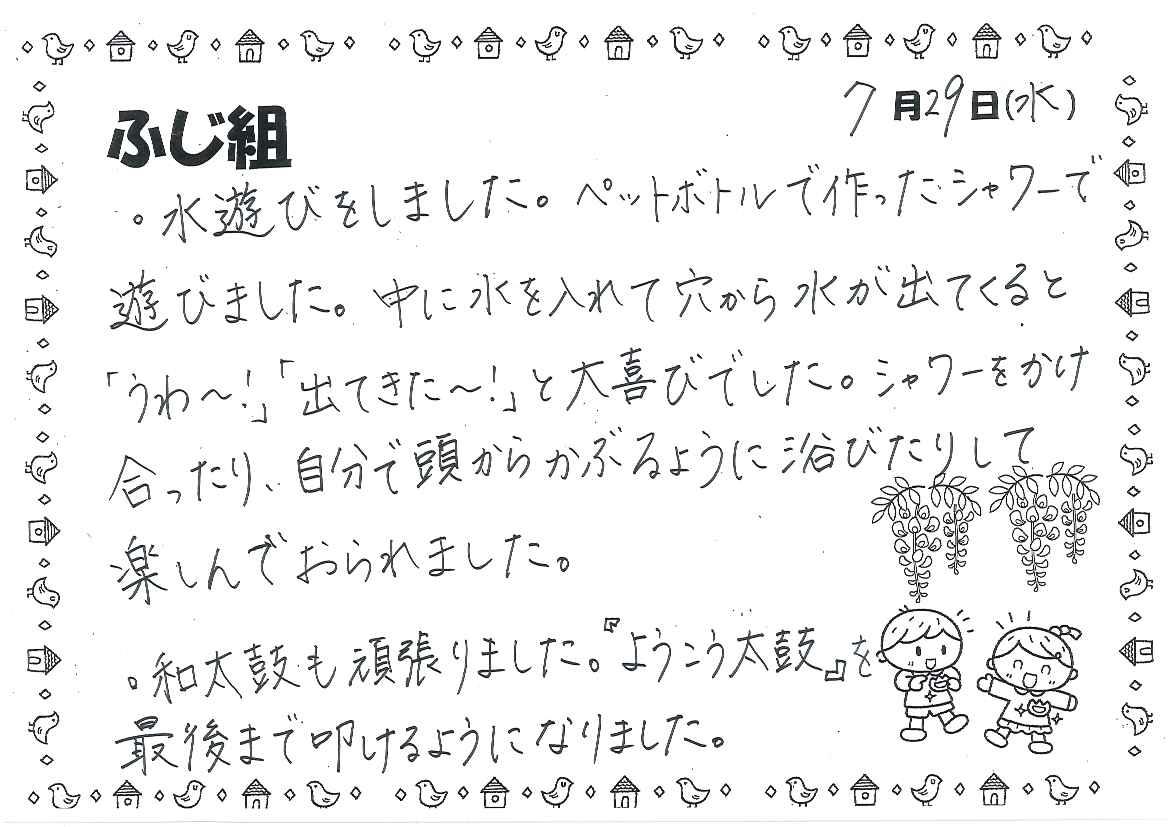 7月29日(水)
ふじ組
・水遊びをしました。ペットボトルで作ったシャワーで
遊びました。中に水を入れて穴から水が出てくると
「うわ～!」「出てきた～!」と大喜びでした。シャワーをかけ
合ったり、自分で頭からかぶるように浴びたりして
楽しんでおられました。
・和太鼓も頑張りました。『ようこう太鼓』を
最後まで叩けるようになりました。